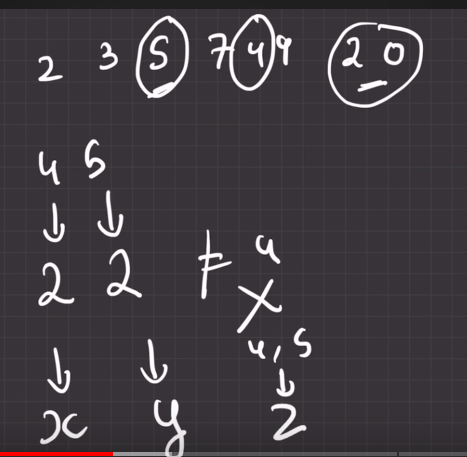 2 3 5 7 4 9 2 0
4 5
↓ ↓
2 2 ≠ 4
×
4, 5
↓ ↓ ↓
x y 2